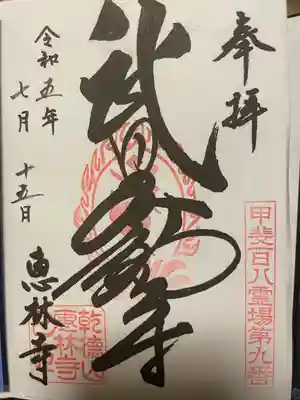 奉拝
甲斐百八霊場第九番
武田不動尊
令和五年
七月 十五日
恵林寺
乾徳山
惠林寺